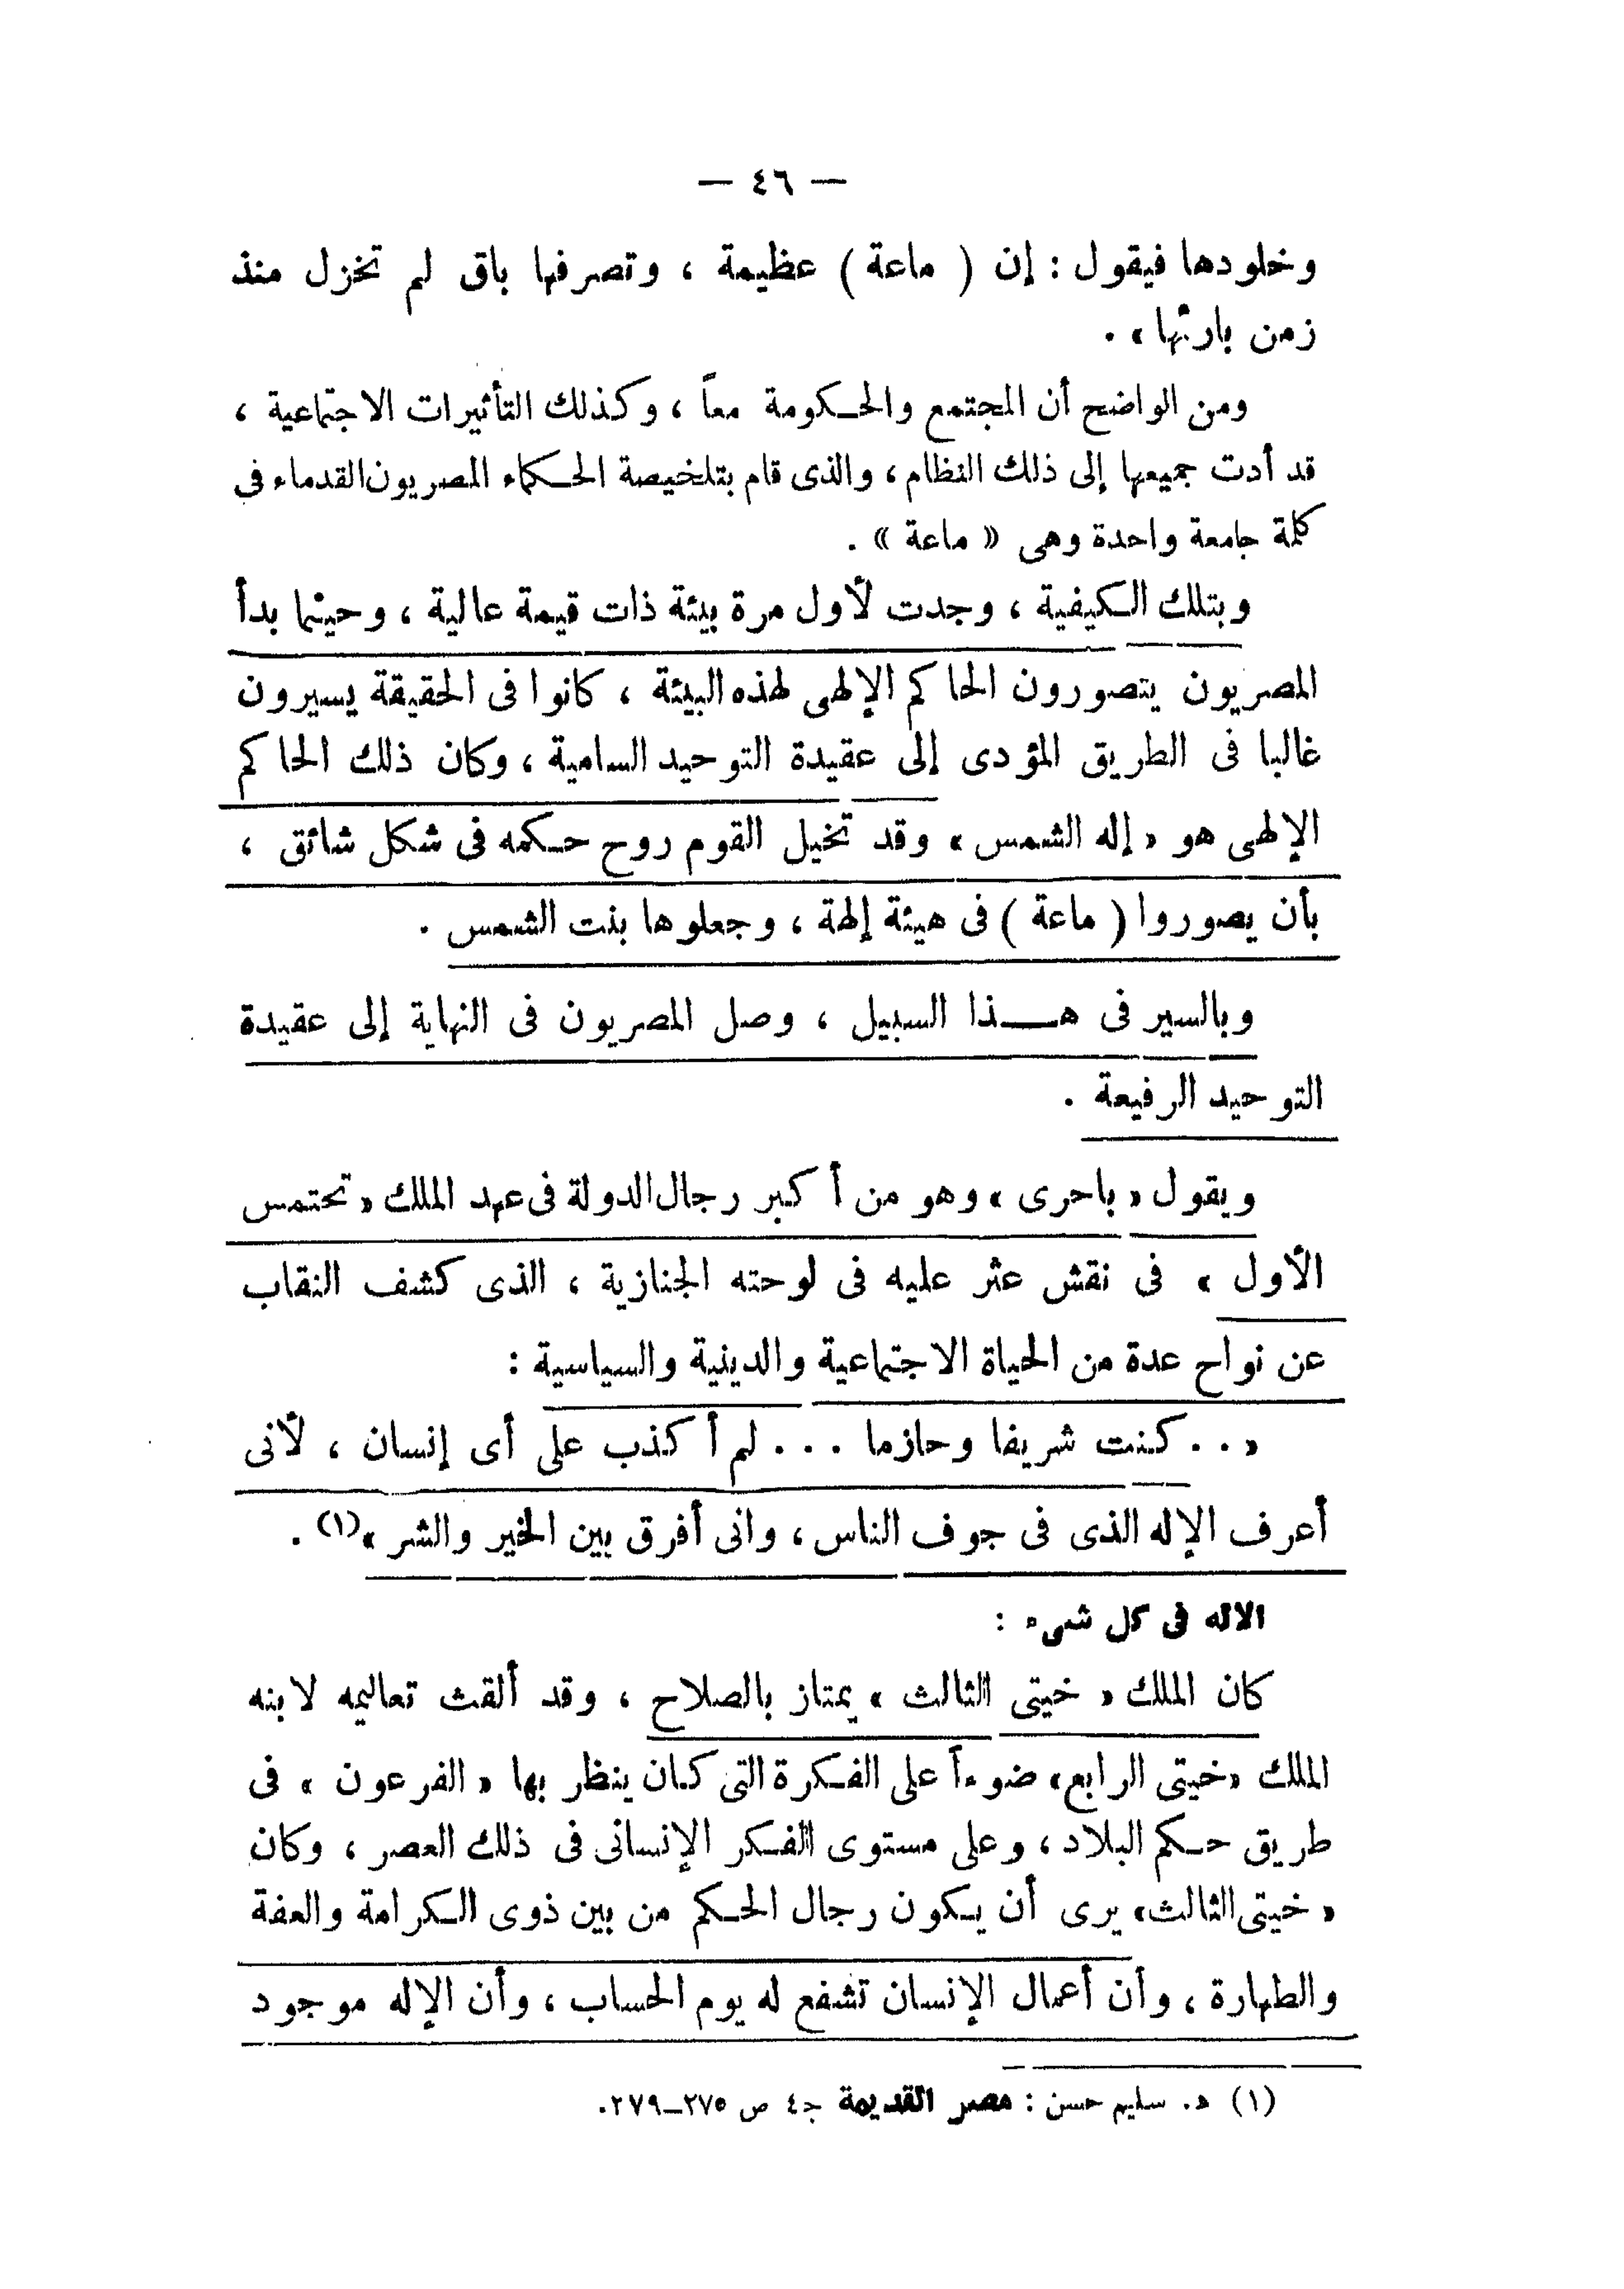 — ٤٦ —
وخلودها فيقول : إن ( ماعة ) عظيمة ، وتصرفها باق لم تخزل منذ
زمن بارئها » .
ومن الواضح أن المجتمع والحكومة معاً ، وكذلك التأثيرات الاجتماعية ،
قد أدت جميعها إلى ذلك النظام ، والذى قام بتلخيصة الحكماء المصريون القدماء فى
كلمة جامعة واحدة وهى « ماعة » .
وبتلك الكيفية ، وجدت لأول مرة بيئة ذات قيمة عالية ، وحينما بدأ
المصريون يتصورون الحاكم الإلهى لهذه البيئة ، كانوا فى الحقيقة يسيرون
غالبا فى الطريق المؤدى إلى عقيدة التوحيد السامية ، وكان ذلك الحاكم
الإلهى هو « إله الشمس » وقد تخيل القوم روح حكمه فى شكل شائق ،
بأن يصوروا ( ماعة ) فى هيئة إلهة ، وجعلوها بنت الشمس .
وبالسير فى هـذا السبيل ، وصل المصريون فى النهاية إلى عقيدة
التوحيد الرفيعة .
ويقول « باحرى » وهو من أكبر رجال الدولة فى عهد الملك « تحتمس
الأول » فى نقش عثر عليه فى لوحته الجنازية ، الذى كشف النقاب
عن نواح عدة من الحياة الاجتماعية والدينية والسياسية :
« . . كنت شريفا وحازما . . . لم أكذب على أى إنسان ، لأنى
أعرف الإله الذى فى جوف الناس ، وانى أفرق بين الخير والشر »(١) .
الاله فى كل شىء :
كان الملك « خيتى الثالث » يمتاز بالصلاح ، وقد ألقت تعاليمه لابنه
الملك « خيتى الرابع » ضوءاً على الفكرة التى كان ينظر بها « الفرعون » فى
طريق حكم البلاد ، وعلى مستوى الفكر الإنسانى فى ذلك العصر ، وكان
« خيتى الثالث » يرى أن يكون رجال الحكم من بين ذوى الكرامة والعفة
والطهارة ، وأن أعمال الإنسان تشفع له يوم الحساب ، وأن الإله موجود
(١) د. سليم حسن : مصر القديمة جـ٤ ص ٢٧٥–٢٧٩.